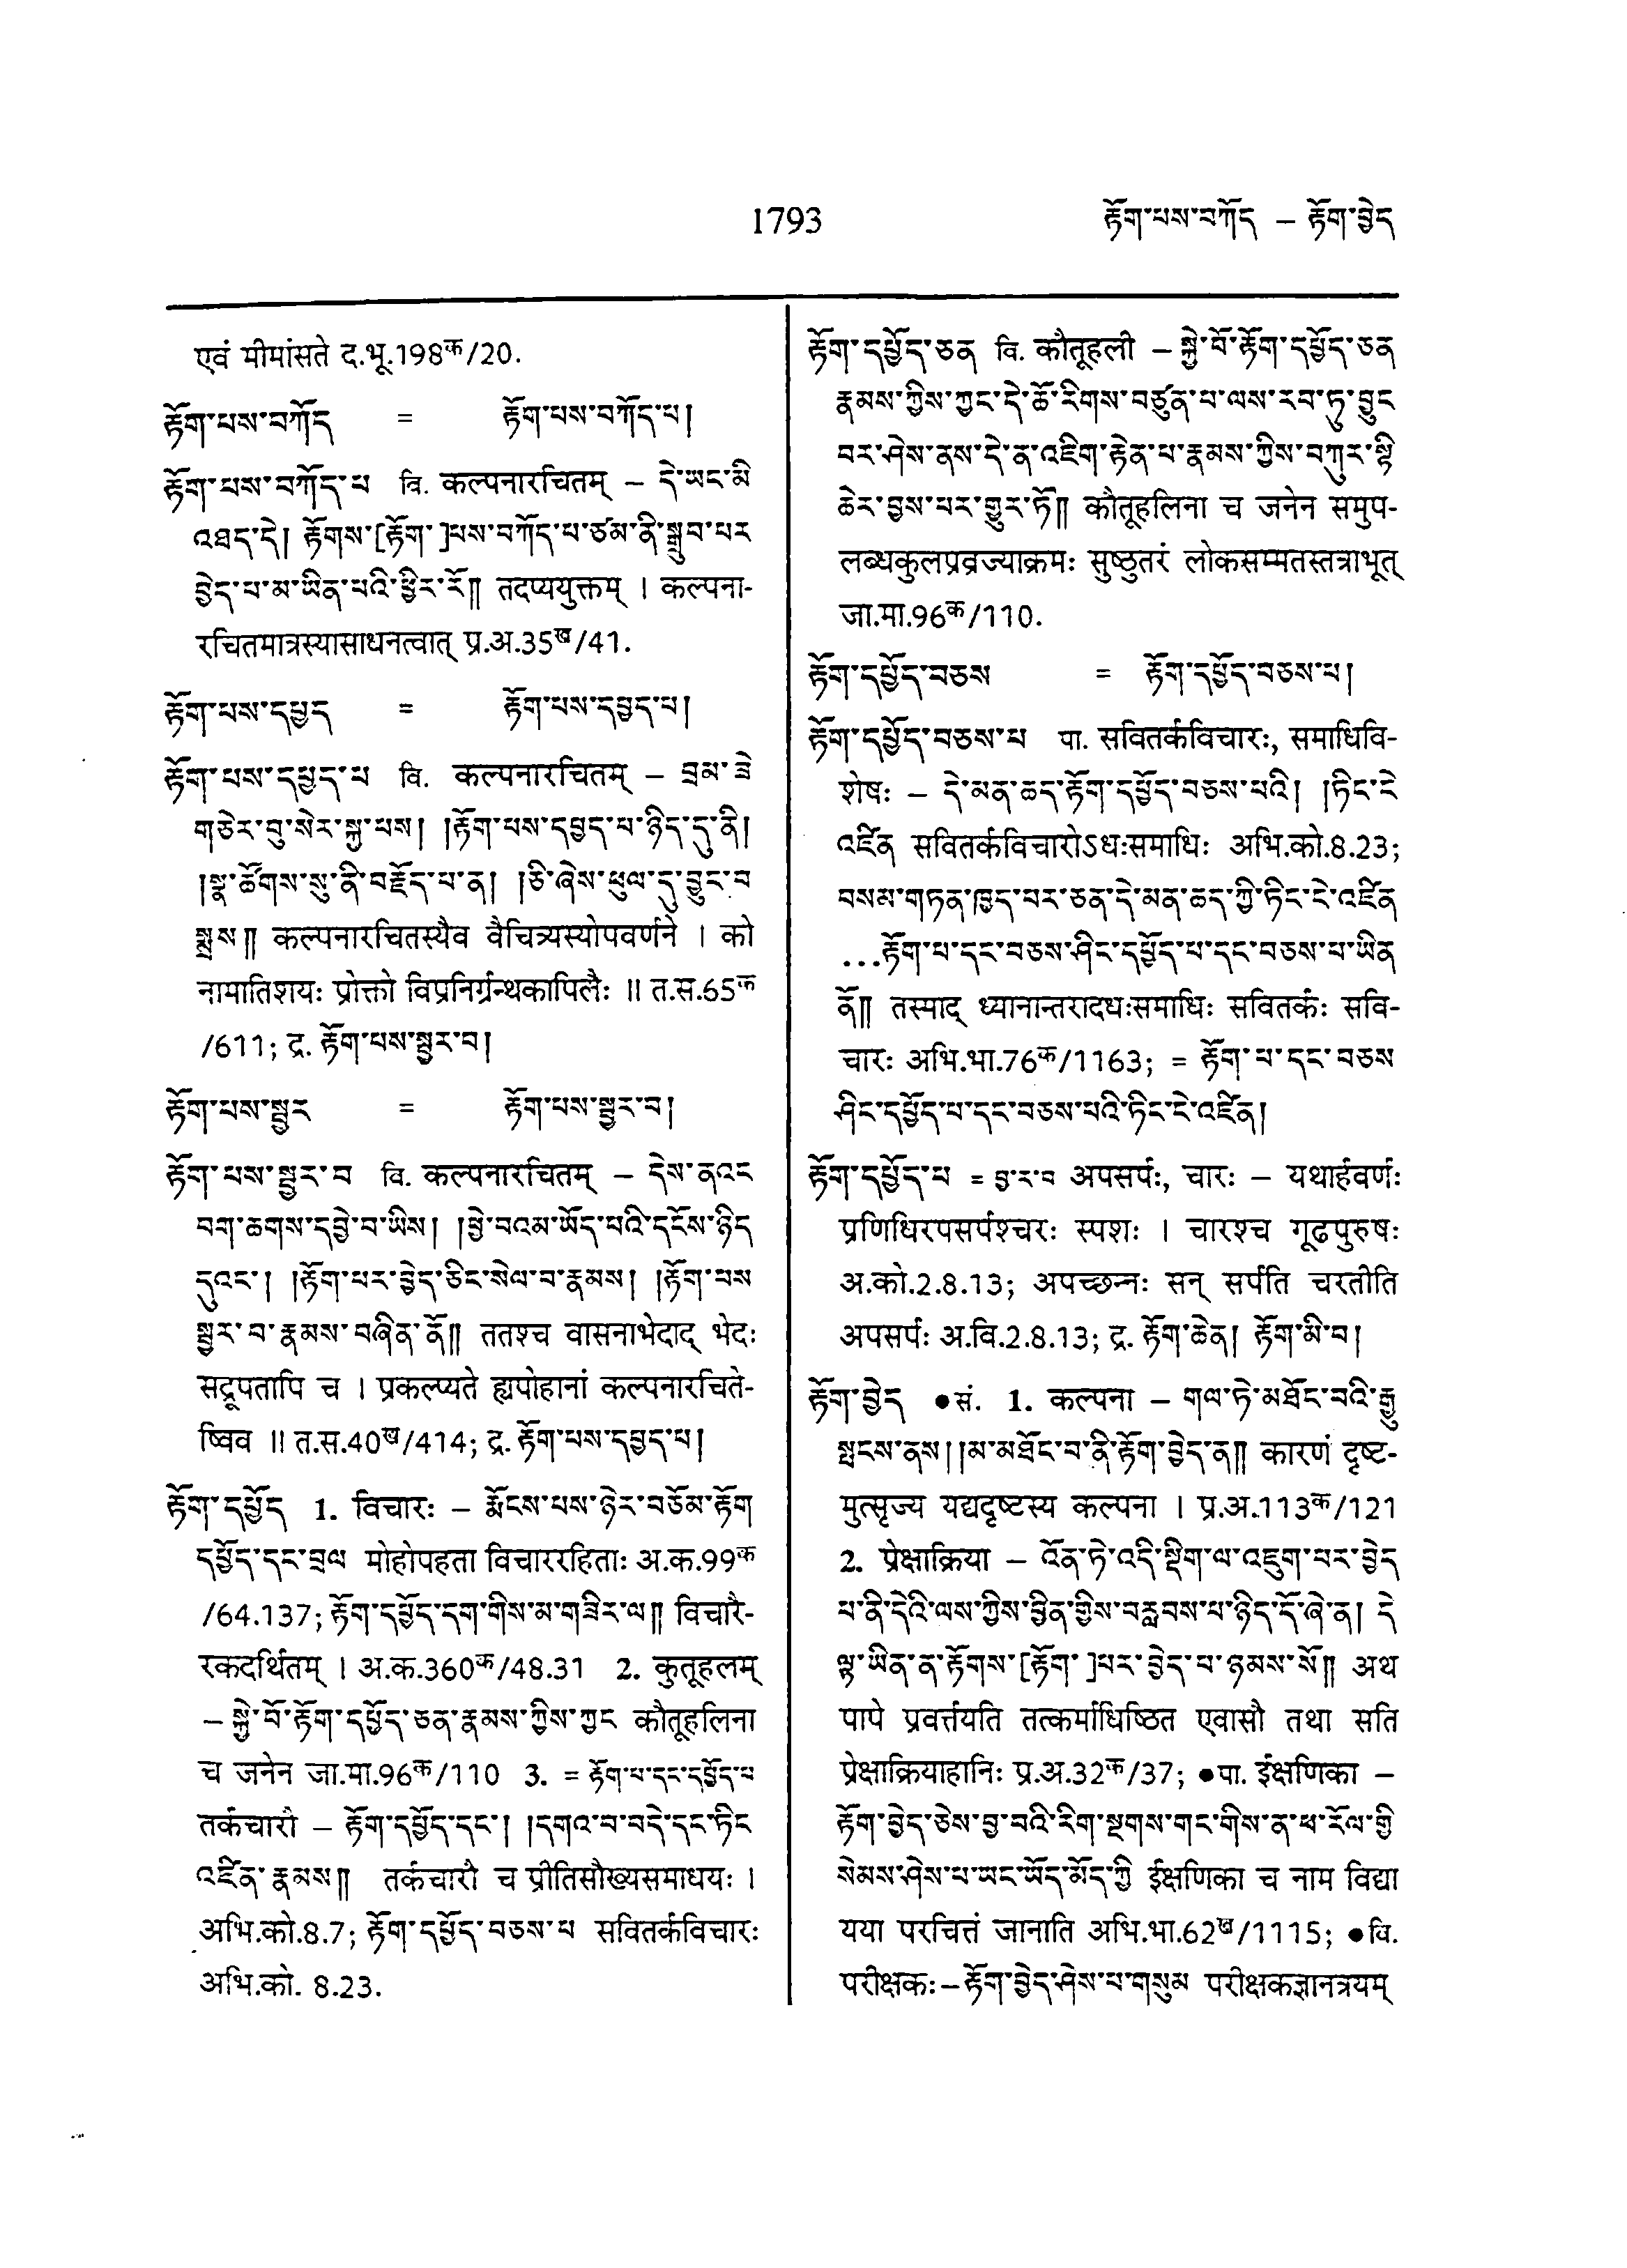 1793
རྟོག་པས་བཀོད – རྟོག་བྱེད
एवं मीमांसते द.भू.198क/20.
རྟོག་པས་བཀོད = རྟོག་པས་བཀོད་པ།
རྟོག་པས་བཀོད་པ वि. कल्पनारचितम् – དེ་ཡང་མི
འཐད་དེ། རྟོགས་[རྟོག་]པས་བཀོད་པ་ཙམ་ནི་སྒྲུབ་པར
བྱེད་པ་མ་ཡིན་པའི་ཕྱིར་རོ॥ तदप्ययुक्तम् । कल्पना-
रचितमात्रस्यासाधनत्वात् प्र.अ.35ख/41.
རྟོག་པས་དཔྱད = རྟོག་པས་དབྱད་པ།
རྟོག་པས་དཔྱད་པ वि. कल्पनारचितम् – བྲམ་ཟེ
གཅེར་བུ་སེར་སྐྱ་པས། །རྟོག་པས་དབྱད་པ་ཉིད་དུ་ནི།
།སྣ་ཚོགས་སུ་ནི་བརྗོད་པ་ན། །ཅི་ཞེས་ཕུལ་དུ་བྱུང་བ
སྨྲས॥ कल्पनारचितस्यैव वैचित्र्यस्योपवर्णने । को
नामातिशयः प्रोक्तो विप्रनिर्ग्रन्थकापिलैः ॥ त.स.65क
/611; द्र. རྟོག་པས་སྦྱར་བ།
རྟོག་པས་སྦྱར = རྟོག་པས་སྦྱར་བ།
རྟོག་པས་སྦྱར་བ वि. कल्पनारचितम् – དེས་ནའང
བག་ཆགས་དབྱེ་བ་ཡིས། །བྱེ་བའམ་ཡོད་པའི་དངོས་ཉིད
དུའང་། །རྟོག་པར་བྱེད་ཅིང་སེལ་བ་རྣམས། །རྟོག་པས
སྦྱར་བ་རྣམས་བཞིན་ནོ॥ ततश्च वासनाभेदाद् भेदः
सद्रूपतापि च । प्रकल्प्यते ह्यपोहानां कल्पनारचिते-
ष्विव ॥ त.स.40ख/414; द्र. རྟོག་པས་དབྱད་པ།
རྟོག་དཔྱོད 1. विचारः – རྨོངས་པས་ཉེར་བཅོམ་རྟོག
དཔྱོད་དང་བྲལ मोहोपहता विचाररहिताः अ.क.99क
/64.137; རྟོག་དཔྱོད་དག་གིས་མ་གཟིར་ལ॥ विचारै-
रकदर्थितम् । अ.क.360क/48.31 2. कुतूहलम्
– སྐྱེ་བོ་རྟོག་དཔྱོད་ཅན་རྣམས་ཀྱིས་ཀྱང कौतूहलिना
च जनेन जा.मा.96क/110 3. = རྟོག་པ་དང་དཔྱོད་པ
तर्कचारौ – རྟོག་དཔྱོད་དང་། །དགའ་བ་བདེ་དང་ཏིང
འཛིན་རྣམས॥ तर्कचारौ च प्रीतिसौख्यसमाधयः ।
अभि.को.8.7; རྟོག་དཔྱོད་བཅས་པ सवितर्कविचारः
अभि.को. 8.23.
རྟོག་དཔྱོད་ཅན वि. कौतूहली – སྐྱེ་བོ་རྟོག་དཔྱོད་ཅན
རྣམས་ཀྱིས་ཀྱང་དེ་ཚོ་རིགས་བཙུན་པ་ལས་རབ་ཏུ་བྱུང
བར་ཤེས་ནས་དེ་ན་འཇིག་རྟེན་པ་རྣམས་ཀྱིས་བཀུར་སྟི
ཆེར་བྱས་པར་གྱུར་ཏོ॥ कौतूहलिना च जनेन समुप-
लब्धकुलप्रव्रज्याक्रमः सुष्ठुतरं लोकसम्मतस्तत्राभूत्
जा.मा.96क/110.
རྟོག་དཔྱོད་བཅས = རྟོག་དཔྱོད་བཅས་པ།
རྟོག་དཔྱོད་བཅས་པ पा. सवितर्कविचारः, समाधिवि-
शेषः – དེ་མན་ཆད་རྟོག་དཔྱོད་བཅས་པའི། །ཏིང་ངེ
འཛིན सवितर्कविचारोऽधःसमाधिः अभि.को.8.23;
བསམ་གཏན་ཁྱད་པར་ཅན་དེ་མན་ཆད་ཀྱི་ཏིང་ངེ་འཛིན
...རྟོག་པ་དང་བཅས་ཤིང་དཔྱོད་པ་དང་བཅས་པ་ཡིན
ནོ॥ तस्माद् ध्यानान्तरादधःसमाधिः सवितर्कः सवि-
चारः अभि.भा.76क/1163; = རྟོག་པ་དང་བཅས
ཤིང་དཔྱོད་པ་དང་བཅས་པའི་ཏིང་ངེ་འཛིན།
རྟོག་དཔྱོད་པ = བྱ་ར་བ अपसर्पः, चारः – यथार्हवर्णः
प्रणिधिरपसर्पश्चरः स्पशः । चारश्च गूढपुरुषः
अ.को.2.8.13; अपच्छन्नः सन् सर्पति चरतीति
अपसर्पः अ.वि.2.8.13; द्र. རྟོག་ཆེན། རྟོག་མི་བ།
རྟོག་བྱེད ●सं. 1. कल्पना – གལ་ཏེ་མཐོང་བའི་རྒྱུ
སྤངས་ནས།།མ་མཐོང་བ་ནི་རྟོག་བྱེད་ན॥ कारणं दृष्ट-
मुत्सृज्य यद्यदृष्टस्य कल्पना । प्र.अ.113क/121
2. प्रेक्षाक्रिया – འོན་ཏེ་འདི་སྡིག་ལ་འཇུག་པར་བྱེད
པ་ནི་དེའི་ལས་ཀྱིས་བྱིན་གྱིས་བརླབས་པ་ཉིད་དོ་ཞེ་ན། དེ
ལྟ་ཡིན་ན་རྟོགས་[རྟོག་]པར་བྱེད་པ་ཉམས་སོ॥ अथ
पापे प्रवर्त्तयति तत्कर्माधिष्ठित एवासौ तथा सति
प्रेक्षाक्रियाहानिः प्र.अ.32क/37; ●पा. ईक्षणिका –
རྟོག་བྱེད་ཅེས་བྱ་བའི་རིག་སྔགས་གང་གིས་ན་ཕ་རོལ་གྱི
སེམས་ཤེས་པ་ཡང་ཡོད་མོད་ཀྱི ईक्षणिका च नाम विद्या
यया परचित्तं जानाति अभि.भा.62ख/1115; ●वि.
परीक्षकः–རྟོག་བྱེད་ཤེས་པ་གསུམ परीक्षकज्ञानत्रयम्